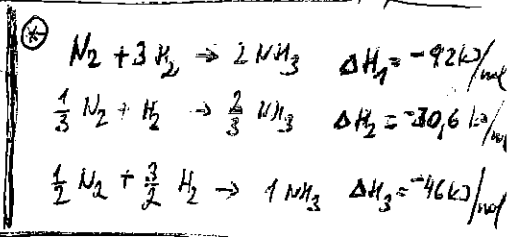 (*) N₂ + 3 H₂ → 2 NH₃ ΔH₁ = -92 kJ/mol
1/3 N₂ + H₂ → 2/3 NH₃ ΔH₂ = -30,6 kJ/mol
1/2 N₂ + 3/2 H₂ → 1 NH₃ ΔH₃ = -46 kJ/mol